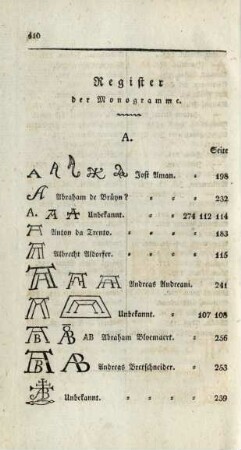 410
Register
der Monogramme.
A.
Seite
A Jost Aman. „ 198
A Abraham de Brüyn? „ „ 232
A. A A Unbekannt. „ „ 274 112 114
Anton da Trento. „ „ 183
Albrecht Aldorfer. „ „ 115
Andreas Andreani. 241
Unbekannt. „ 107 108
AB AB Abraham Bloemaerk. „ 256
AB AB Andreas Bretschneider. „ 253
Unbekannt. „ „ „ 259